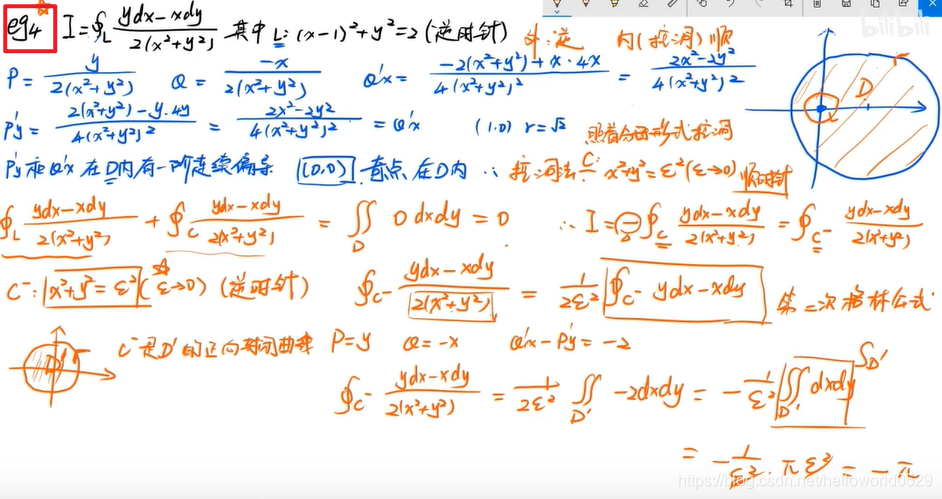 eg4 I=∮_L (ydx-xdy)/(2(x²+y²)) 其中L:(x-1)²+y²=2(逆时针) 外:逆 内(挖洞)顺
P = y/(2(x²+y²)) Q = -x/(2(x²+y²)) Q'x = (-2(x²+y²)+x·4x)/(4(x²+y²)²) = (2x²-2y²)/(4(x²+y²)²)
P'y = (2(x²+y²)-y·4y)/(4(x²+y²)²) = (2x²-2y²)/(4(x²+y²)²) = Q'x (1,0) r=√2 照着分母形式挖洞
P'y和Q'x在D内有一阶连续偏导 (0,0) 奇点在D内 ∴ 挖洞法 C: x²+y²=ε²(ε→0) 顺时针
∮_L (ydx-xdy)/(2(x²+y²)) + ∮_C (ydx-xdy)/(2(x²+y²)) = ∬_D 0dxdy = 0 ∴ I = -∮_C (ydx-xdy)/(2(x²+y²)) = ∮_C⁻ (ydx-xdy)/(2(x²+y²))
C⁻: x²+y²=ε² (ε→0) (逆时针) ∮_C⁻ (ydx-xdy)/(2(x²+y²)) = 1/(2ε²) ∮_C⁻ ydx-xdy 第二次格林公式
C⁻是D'的正向封闭曲线 P=y Q=-x Q'x-P'y=-2
∮_C⁻ (ydx-xdy)/(2(x²+y²)) = 1/(2ε²) ∬_D' -2dxdy = -1/ε² ∬_D' dxdy S_D'
= -1/ε² · πε² = -π
D
D'
bilibili
https://blog.csdn.net/helloworld0529